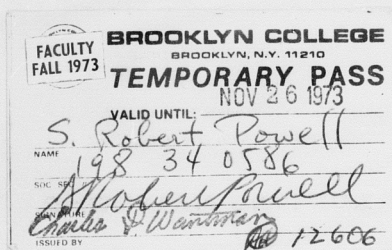 FACULTY
FALL 1973
BROOKLYN COLLEGE
BROOKLYN, N.Y. 11210
TEMPORARY PASS
NOV 26 1973
VALID UNTIL:
S. Robert Powell
NAME
198 34 0586
SOC SEC
S Robert Powell
SIGNATURE
Charles J. Wantman
ISSUED BY
12606